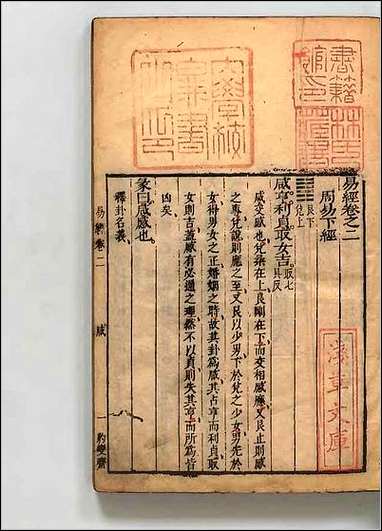 書籍
館印
林氏
藏書
大學校
圖書
之印
淺草文庫
易經卷之二
周易下經
艮下
兌上
咸亨利貞取女吉 取七具反
咸交感也兌柔在上艮剛在下而交相感應又艮止則感
之專兌說則應之至又艮以少男下於兌之少女男先於
女得男女之正婚姻之時故其卦為咸其占亨而利貞取
女則吉蓋感有必通之理然不以貞則失其亨而所為皆
凶矣
彖曰咸感也
釋卦名義
易經卷二 咸 一 豹變齋